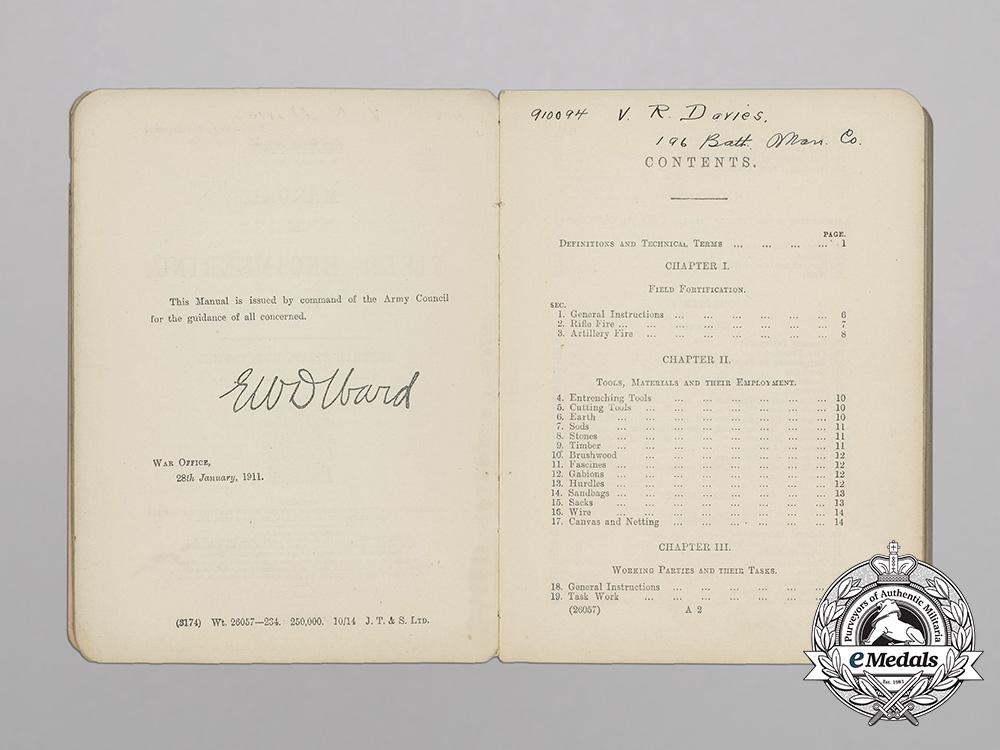 This Manual is issued by command of the Army Council
for the guidance of all concerned.
EWDWard
War Office,
28th January, 1911.
(3174) Wt. 26057—234. 250,000. 10/14 J. T. & S. Ltd.
910094 V. R. Davies.
196 Batt. Man. Co.
CONTENTS.
PAGE.
Definitions and Technical Terms ... ... ... ... 1
CHAPTER I.
Field Fortification.
SEC.
1. General Instructions ... ... ... ... ... ... 6
2. Rifle Fire ... ... ... ... ... ... ... ... 7
3. Artillery Fire ... ... ... ... ... ... ... 8
CHAPTER II.
Tools, Materials and their Employment.
4. Entrenching Tools ... ... ... ... ... ... 10
5. Cutting Tools ... ... ... ... ... ... ... 10
6. Earth ... ... ... ... ... ... ... ... 10
7. Sods ... ... ... ... ... ... ... ... 11
8. Stones ... ... ... ... ... ... ... ... 11
9. Timber ... ... ... ... ... ... ... ... 11
10. Brushwood ... ... ... ... ... ... ... 12
11. Fascines ... ... ... ... ... ... ... ... 12
12. Gabions ... ... ... ... ... ... ... ... 12
13. Hurdles ... ... ... ... ... ... ... ... 12
14. Sandbags ... ... ... ... ... ... ... ... 13
15. Sacks ... ... ... ... ... ... ... ... 13
16. Wire ... ... ... ... ... ... ... ... 14
17. Canvas and Netting ... ... ... ... ... ... 14
CHAPTER III.
Working Parties and their Tasks.
18. General Instructions ... ... ... ... ... ...
19. Task Work ... ... ... ... ... ... ...
(26057) A 2
Purveyors of Authentic Militaria
eMedals
Est. 1981